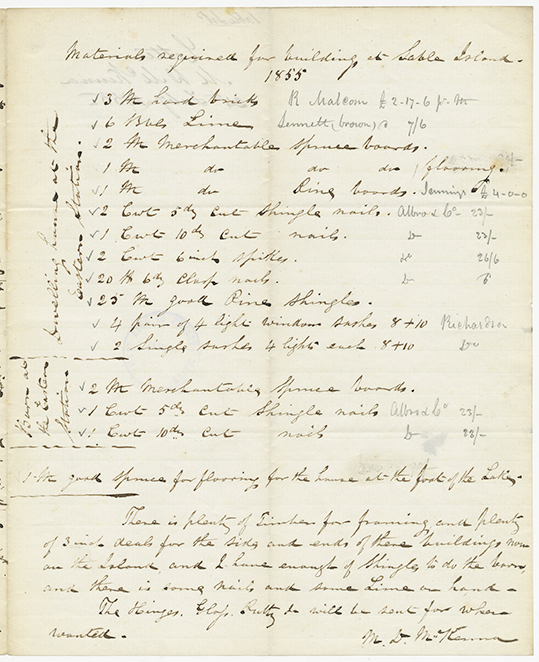 Materials required for building at Sable Island.
1855
Dwelling house at the
Eastern Station.
✓ 3 M hard bricks R Malcom £ 2-17-6 pr M
✓ 6 Bbls Lime Jennett (brown) 7/6
✓ 2 M Merchantable Spruce boards.
1 M do do do flooring.
✓ 1 M do Pine boards. Jennings £ 4-0-0
✓ 2 Cwt 5dy Cut Shingle nails. Albro & Co 23/-
✓ 1 Cwt 10dy Cut nails. do 23/-
✓ 2 Cwt 6 inch spikes. do 26/6
✓ 20 lb 6dy Clasp nails. do 6
✓ 25 M good Pine Shingles.
✓ 4 pair of 4 light window sashes 8+10 Richardson
✓ 2 Single sashes 4 lights each 8+10 Do
Barn at
the Eastern
Station
✓ 2 M Merchantable Spruce boards.
✓ 1 Cwt 5dy Cut Shingle nails Albro & Co 23/-
✓ 1 Cwt 10dy Cut nails do 23/-
1 M good Spruce for flooring for the house at the foot of the Lake.
There is plenty of Timber for framing and plenty
of 3 inch deals for the sides and ends of these buildings now
on the Island and I have enough of Shingles to do the barn,
and there is some nails and some Lime on hand -
The Hinges, Glass, Putty &c will be sent for when
wanted.
M. D. McKenna